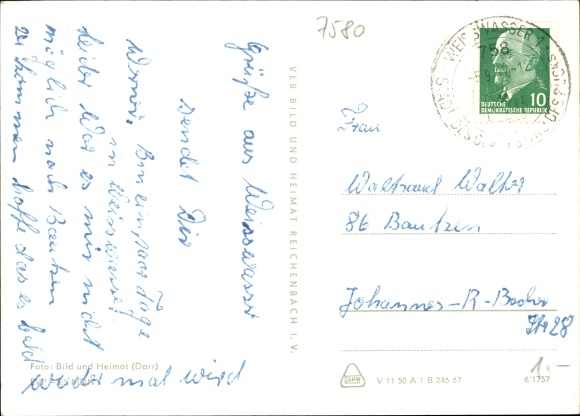 7580
Grüße aus Weisswasser
sendet Dir
Werner. Bin ein paar Tage
in Weisswasser!
Leider war es mir nicht
möglich nach Bautzen
zu kommen hoffe das es bald
wieder mal wird
VEB BILD UND HEIMAT REICHENBACH I. V.
Foto: Bild und Heimat (Darr)
WEISSWASSER
758
DEUTSCHE
DEMOKRATISCHE REPUBLIK
10
Frau
Waltraud Walter
86 Bautzen
Johannes-R-Becher
Str 28
V 11 50 A 1 B 246.67
6/1757
1.-